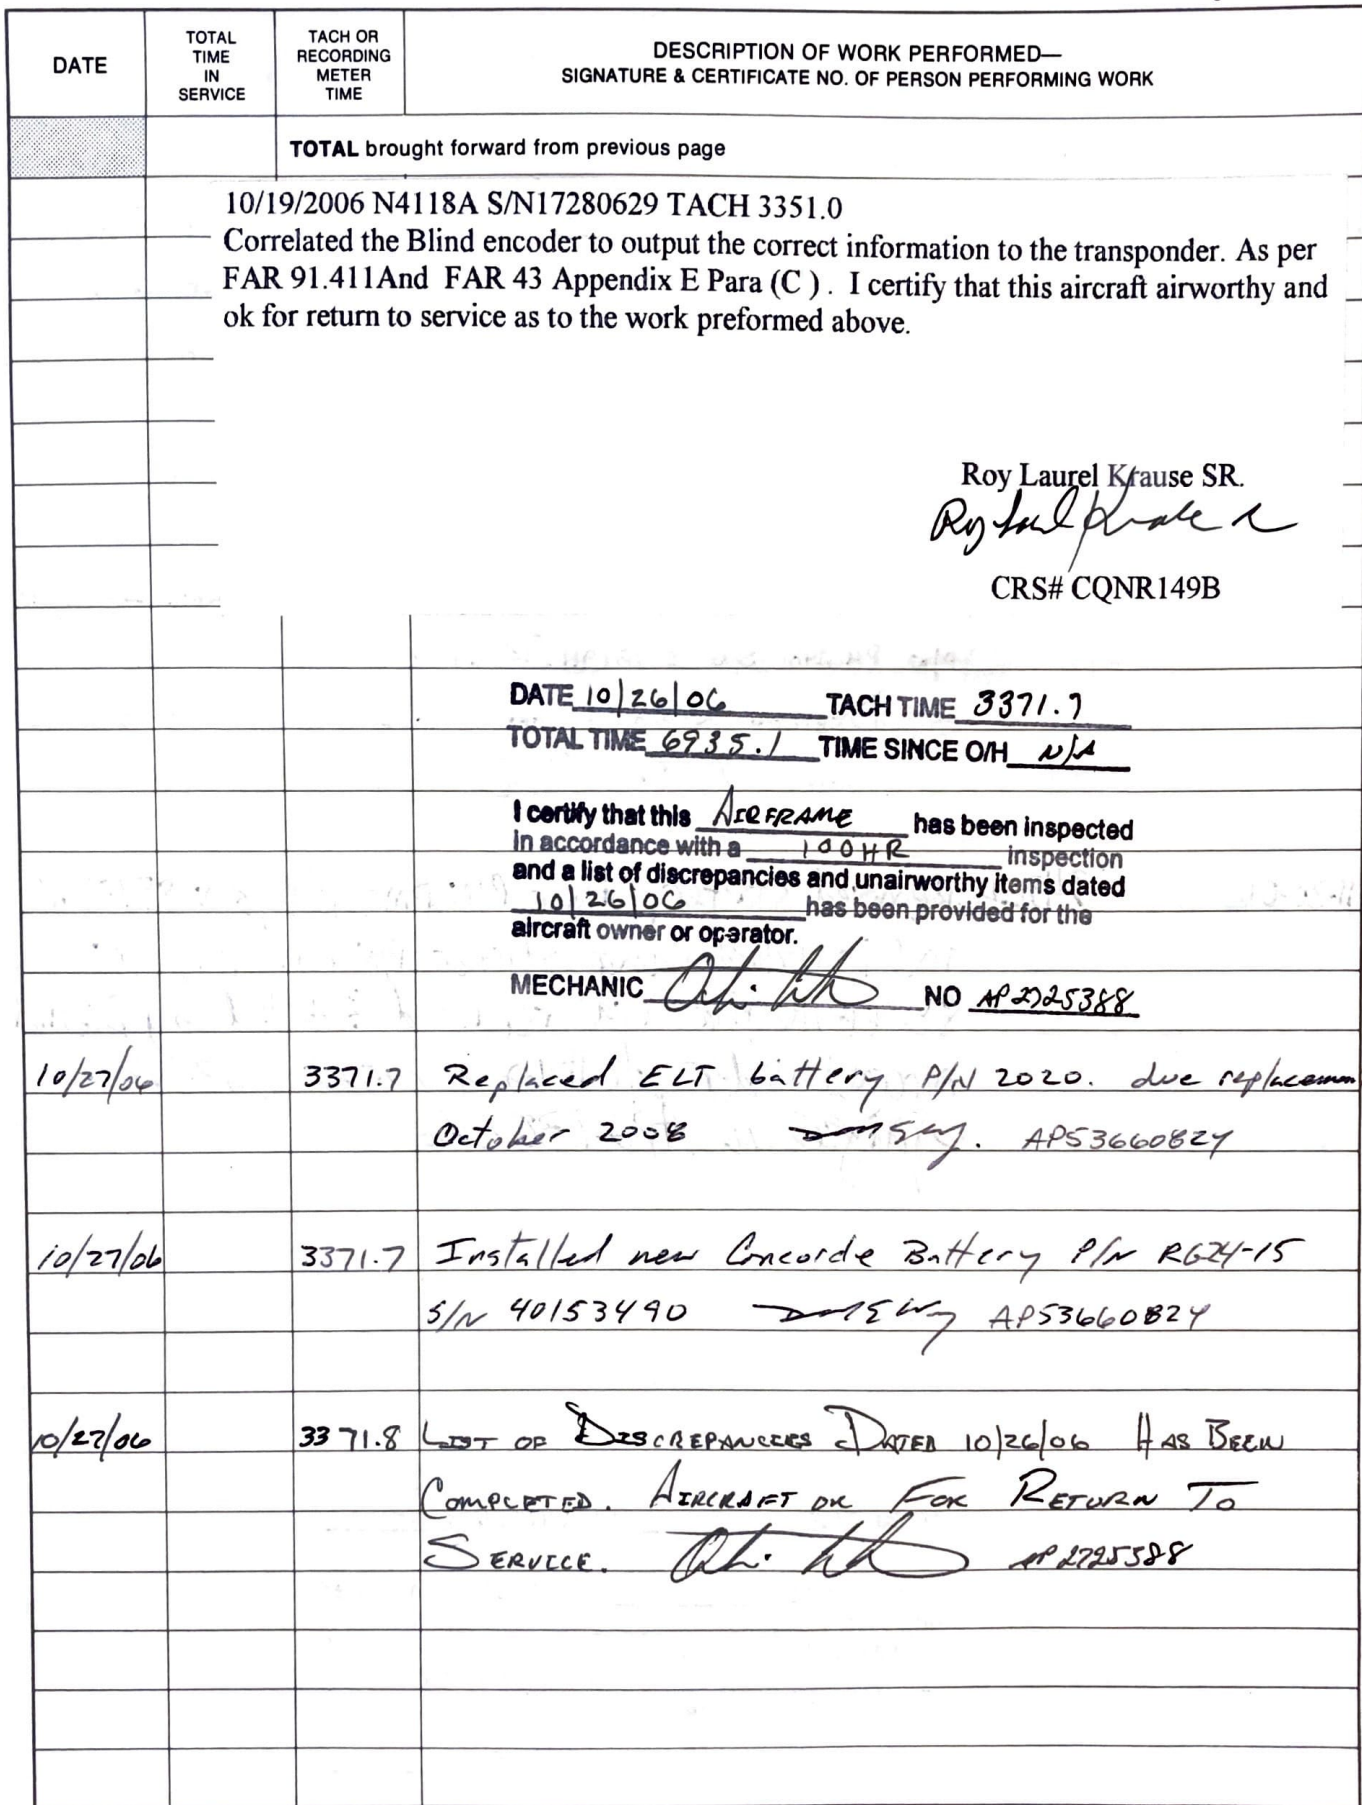 DATE
TOTAL TIME IN SERVICE
TACH OR RECORDING METER TIME
DESCRIPTION OF WORK PERFORMED—
SIGNATURE & CERTIFICATE NO. OF PERSON PERFORMING WORK
TOTAL brought forward from previous page
10/19/2006 N4118A S/N17280629 TACH 3351.0
Correlated the Blind encoder to output the correct information to the transponder. As per
FAR 91.411And FAR 43 Appendix E Para (C ) . I certify that this aircraft airworthy and
ok for return to service as to the work preformed above.
Roy Laurel Krause SR.
CRS# CQNR149B
DATE 10/26/06 TACH TIME 3371.7
TOTAL TIME 6935.1 TIME SINCE O/H N/A
I certify that this AIRFRAME has been inspected
in accordance with a 100HR inspection
and a list of discrepancies and unairworthy items dated
10/26/06 has been provided for the
aircraft owner or operator.
MECHANIC NO AP 2725388
10/27/06 3371.7 Replaced ELT battery P/N 2020. due replacemn
October 2008 AP53660824
10/27/06 3371.7 Installed new Concorde Battery P/N RG24-15
S/N 40153490 AP53660824
10/27/06 3371.8 LIST OF DISCREPANCIES DATED 10/26/06 HAS BEEN
COMPLETED. AIRCRAFT OK FOR RETURN TO
SERVICE. AP 2725388